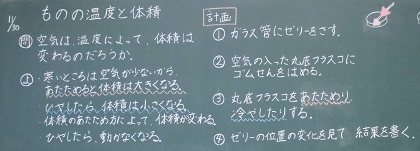 11/30
ものの温度と体積
問 空気は、温度によって、体積は
変わるのだろうか。
予 ・寒いところは空気が少ないから
あたためると体積は大きくなる。
ひやしたら、体積は小さくなる。
・体積のあたため方によって、体積が変わる
ひやしたら、動かなくなる。
計画
① ガラス管にゼリーをさす。
② 空気の入った丸底フラスコに
ゴムせんをはめる。
③ 丸底フラスコをあたためたり、
冷やしたりする。
④ ゼリーの位置の変化を見て 結果を書く。